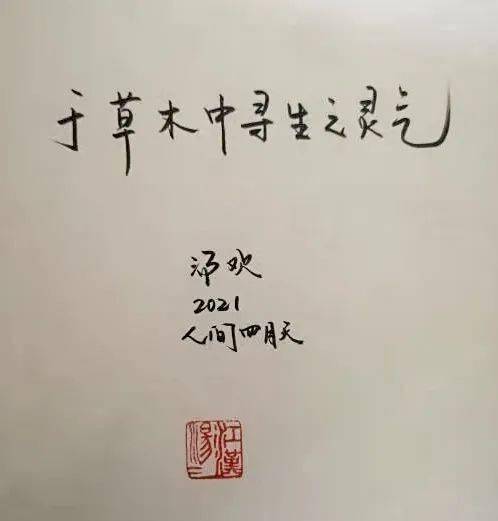 于草木中寻生之灵气
欢
2021
人间四月天
江漢
湯二